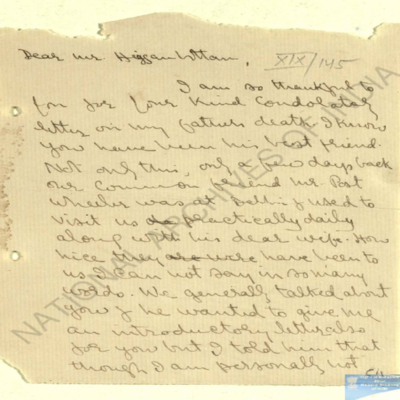 Dear Mr Higgan Lottam, XIX/145
I am so thankful to
you for your kind Condolatary
letter on my fathers death. I know
you have been his best friend.
Not only this, only a few days back
our common friend Mr. Post
wheeler was at Delhi & used to
visit us practically daily
along with his dear wife. How
nice they are were have been to
us I can not say in so many
words. We generally talked about
you & he wanted to give me
an introductory letter also
for you but I told him that
though I am personally not
NATIONAL ARCHIVES OF INDIA